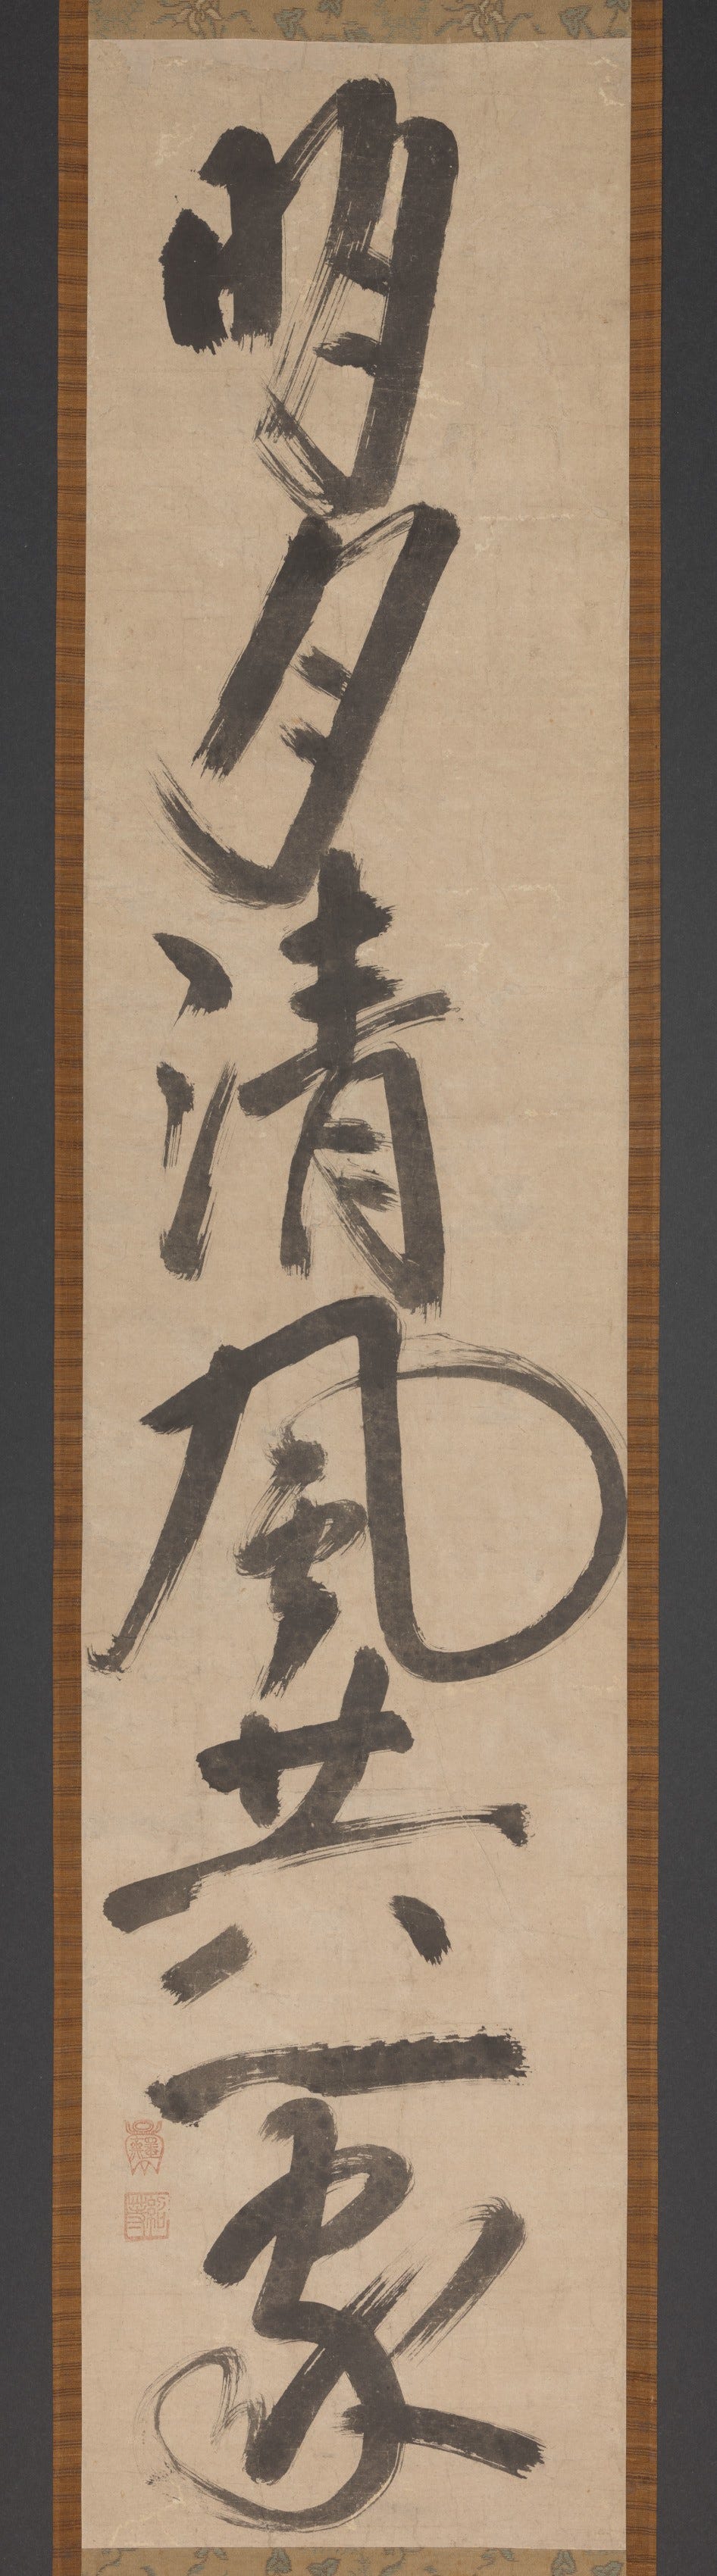 明月清風共一家